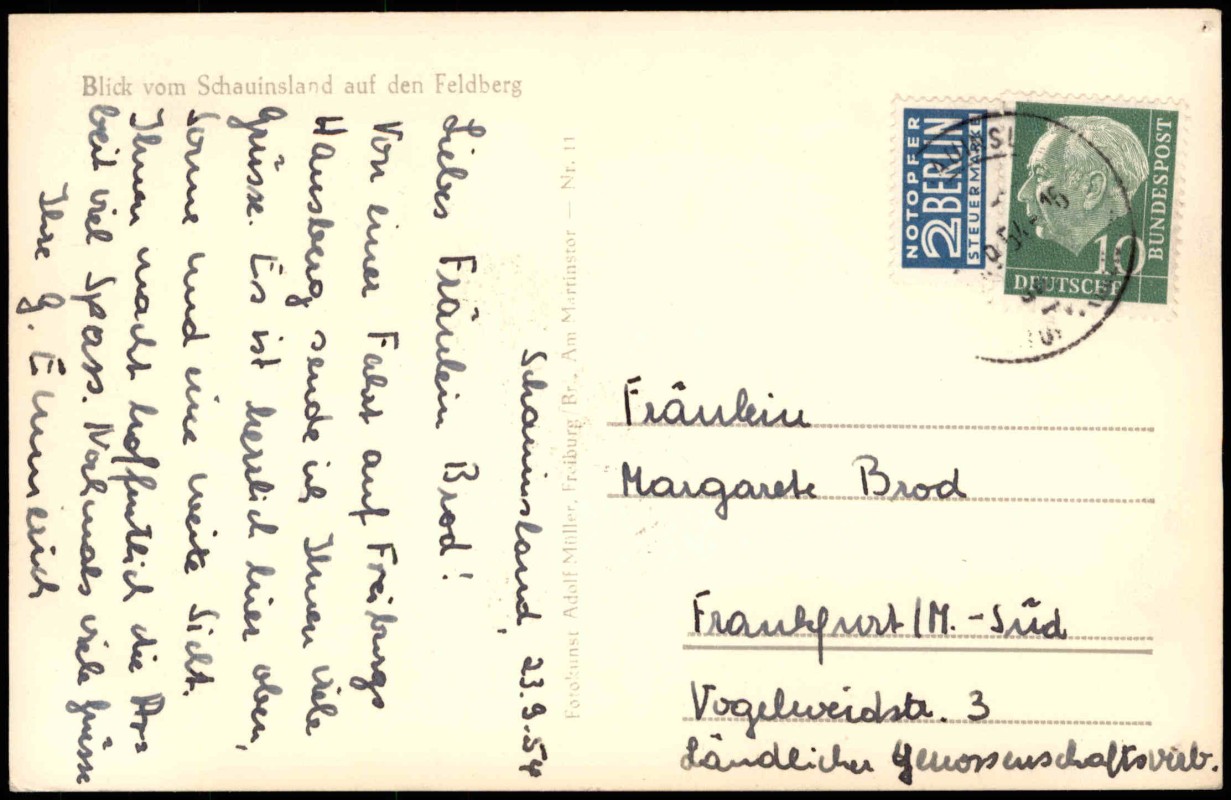 Blick vom Schauinsland auf den Feldberg
Schauinsland, 23.9.54
Liebes Fräulein Brod!
Von einer Fahrt auf Freiburgs
Hausberg sende ich Ihnen viele
Grüsse. Es ist herrlich hier oben,
Sonne und eine weite Sicht.
Ihnen macht hoffentlich die Ar=
beit viel Spass. Nochmals viele Grüsse
Ihre G. Emmerich
Fotokunst Adolf Müller, Freiburg/Br., Am Martinstor — Nr. 11
NOTOPFER
2 BERLIN
STEUERMARKE
10
DEUTSCHE
BUNDESPOST
Fräulein
Margarete Brod
Frankfurt/M.-Süd
Vogelweidstr. 3
Ländlicher Genossenschaftsverb.